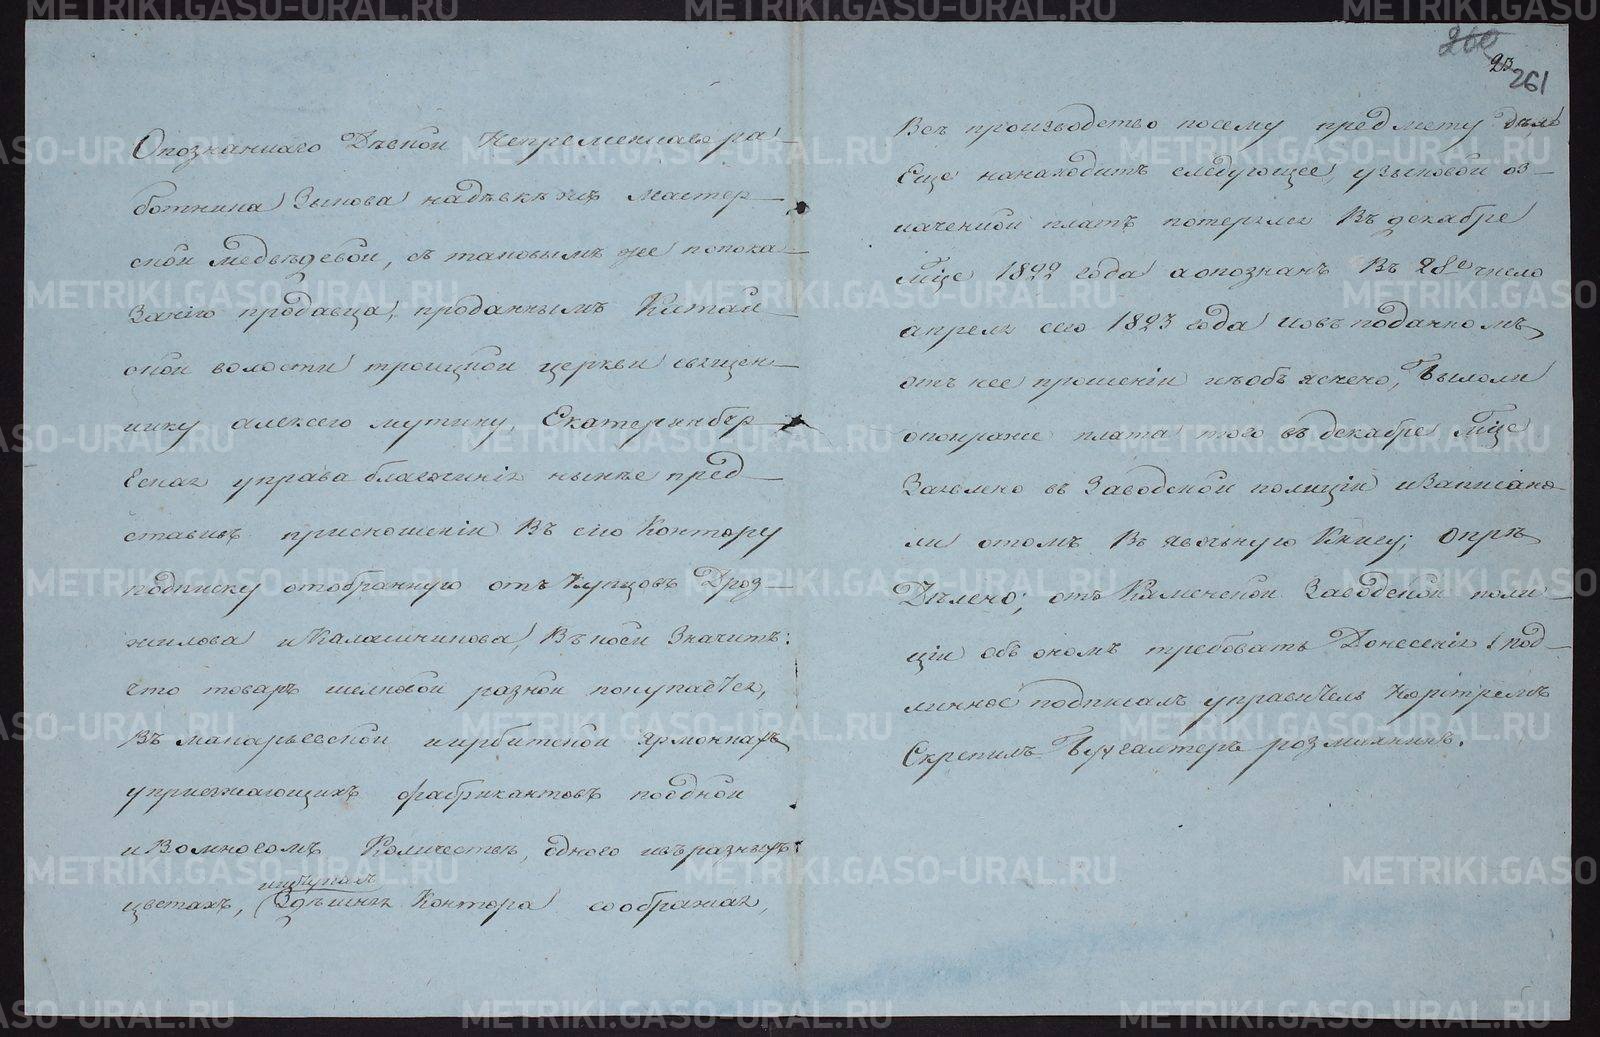 260
23
261
Опознаннаго Женой Непременнаго ра-
ботника Зыкова на девке Мастер-
ской Медведевой, съ таковымъ же попока-
занію продавца, проданнымъ Китай-
ской волости троицкой церкви священ-
нику алексею мутину, Екатеринбур
гская управа благочинія ныне пред-
ставивъ приотношеніи Въ сію Контору
подписку отобранную отъ Купцовъ Дроз-
жилова и Калашникова, Въ коей Значитъ:
что товаръ шелковой разной покупается,
Въ макарьевской и ирбитской ярмонкахъ
у приезжающихъ фабрикантовъ по одной
и Вомногомъ Количестве, одного и въ разныхъ
штукахъ
цветахъ, Здешняя Контора соображая,
Все производство посему предмету дела
Еще нанаходитъ следующее, узыковой оз-
наченной платъ потерялся Въ декабре
мце 1822 года а опознанъ Въ 28е число
апреля сего 1823 года и овъ поданномъ
отъ нее прошеніи необъяснено, Было ли
опокраже плата того въ декабре мце
Заявлено въ Заводской полиціи и Записано-
ли отомъ Въ явочную Книгу; Опре
Делено; отъ Каменской Заводской поли-
ціи обь ономъ требовать Донесенія, под-
линное подписалъ управитель
Скрепилъ Бухгалтеръ розмахнинъ.
METRIKI.GASO-URAL.RU